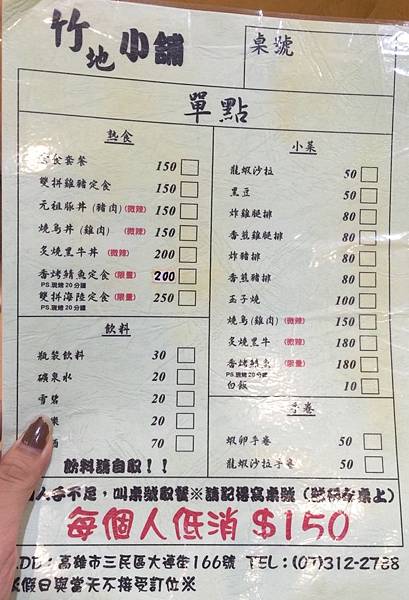 竹地小舖
桌號
單點
熱食
食套餐 150
雙拼雞豬定食 150
元祖豚丼(豬肉)(微辣) 150
燒鳥丼(微辣) 150
炙燒黑牛丼(微辣) 200
香烤鯖魚定食(限量) 200
PS.現烤20分鐘
雙拼海陸定食(限量) 250
飲料
瓶裝飲料 30
礦泉水 20
雪碧 20
樂 20
酒 70
飲料請自取!!
小菜
龍蝦沙拉 50
黑豆 50
炸雞腿排 80
香煎雞腿排 80
炸豬排 80
香煎豬排 80
玉子燒 100
燒鳥(雞肉)(微辣) 180
炙燒黑牛(微辣) 180
香烤鯖魚(限量) 180
PS.現烤20分鐘
白飯 10
手卷
蝦卵手卷 50
龍蝦沙拉手卷 50
人手不足,叫桌號取餐※請記得寫桌號(號碼在桌上)
每個人低消$150
.DD:高雄市三民區大連街166號 TEL:(07)312-2788
※假日與當天不接受訂位※